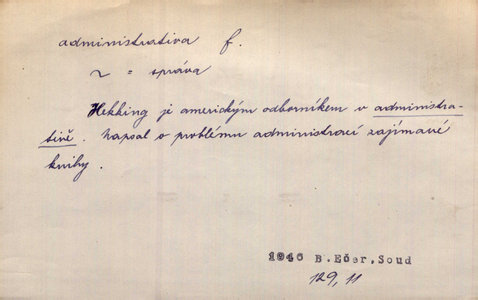 administrativa f.
~ = správa
Hekking je americkým odborníkem v administra-
tivě. Napsal o problému administrací zajímavé
knihy.
1946 B. Ečer, Soud
129, 11